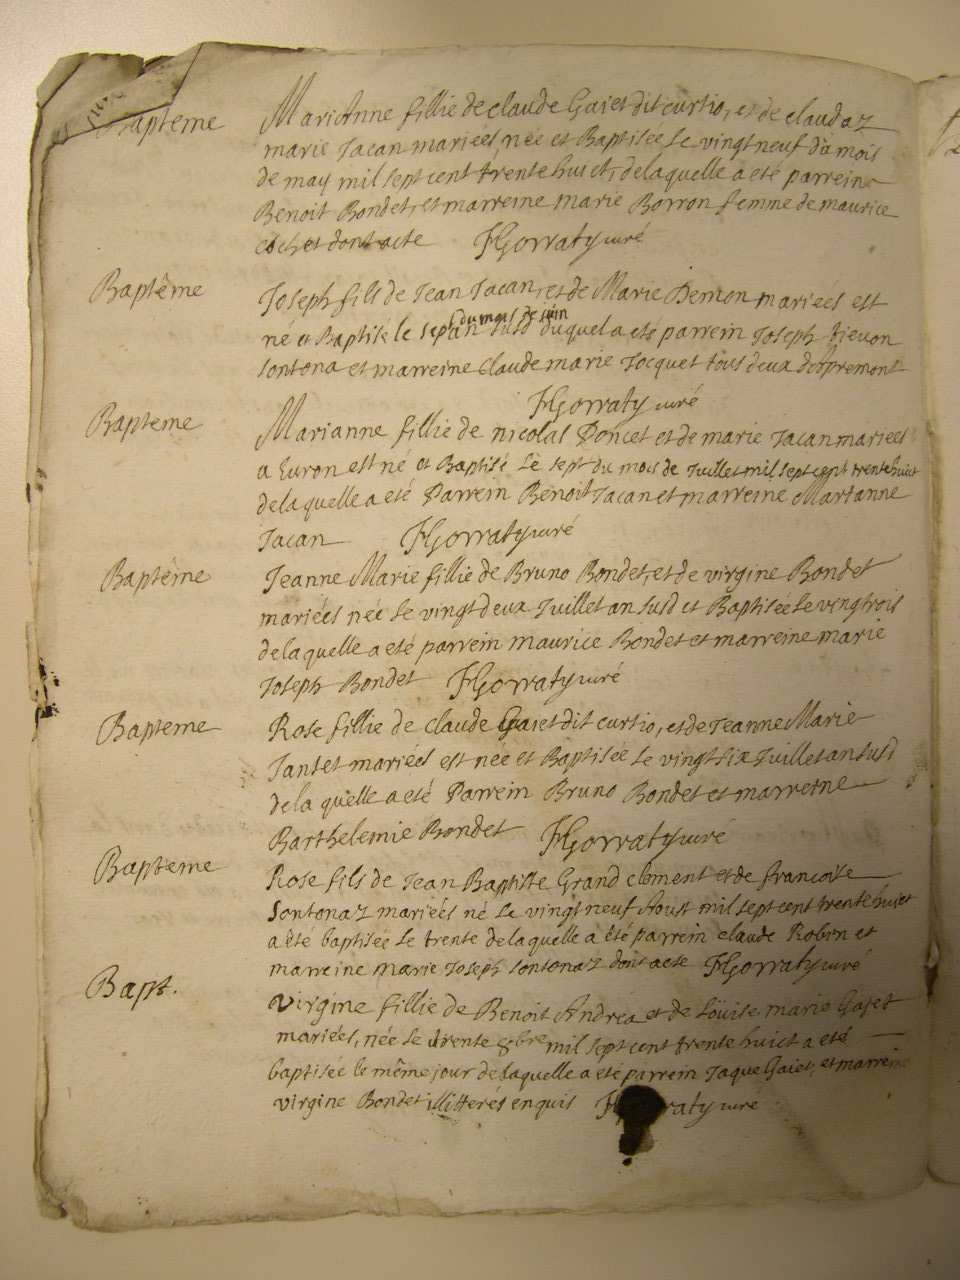 Bapteme
MariAnne fillie de claude Gajet dit curtio, et de claudaz
marie Jacan mariées née et Baptisée Le vingt neuf du mois
de may mil sept cent trente huict, de laquelle a eté parrein
Benoit Bondet, et marreine marie Borron femme de maurice
cochet dont acte HGorraty curé
Baptême
Joseph fils de Jean Jacan, et de Marie Demon mariées est
du mois de juin
né et Baptisé le sept an susd duquel a eté parrein Joseph
Sontona et marreine Claude marie Jocquet tous deux d'Apremont
HGorraty curé
Bapteme
Marianne fillie de nicolas Poncet et de marie Jacan mariées
a Euron est né et Baptisé Le sept du mois de Juillet mil sept cent trente huict
de laquelle a eté Parrein Benoit Jacan et marreine Marianne
Jacan HGorraty curé
Baptême
Jeanne Marie fillie de Bruno Bondet, et de virgine Bondet
mariées née Le vingt deux Juillet an susd et Baptisée Le vingtrois
de laquelle a eté parrein maurice Bondet et marreine marie
Joseph Bondet HGorraty curé
Bapteme
Rose fillie de claude Gajet dit curtio, et de Jeanne Marie
Jantet mariées est née et Baptisée Le vingt six Juillet an susd
de la quelle a eté Parrein Bruno Bondet et marreine
Barthelemie Bondet HGorraty curé
Bapteme
Rose fils de Jean Baptiste Grand clement et de francoise
Sontonaz mariées né Le vingt neuf Aoust mil sept cent trente huict
a été baptisée Le trente de laquelle a été parrein claude Robin et
marreine Marie Joseph Sontonaz dont acte HGorraty curé
Bapt.
Virgine fillie de Benoit Andréa et de Loüise marie Gajet
mariées, née Le trente 8bre mil sept cent trente huict a eté
baptisée le même jour de laquelle a eté parrein Jaque Gaiet, et marreine
virgine Bondet illitterés enquis HGorraty curé